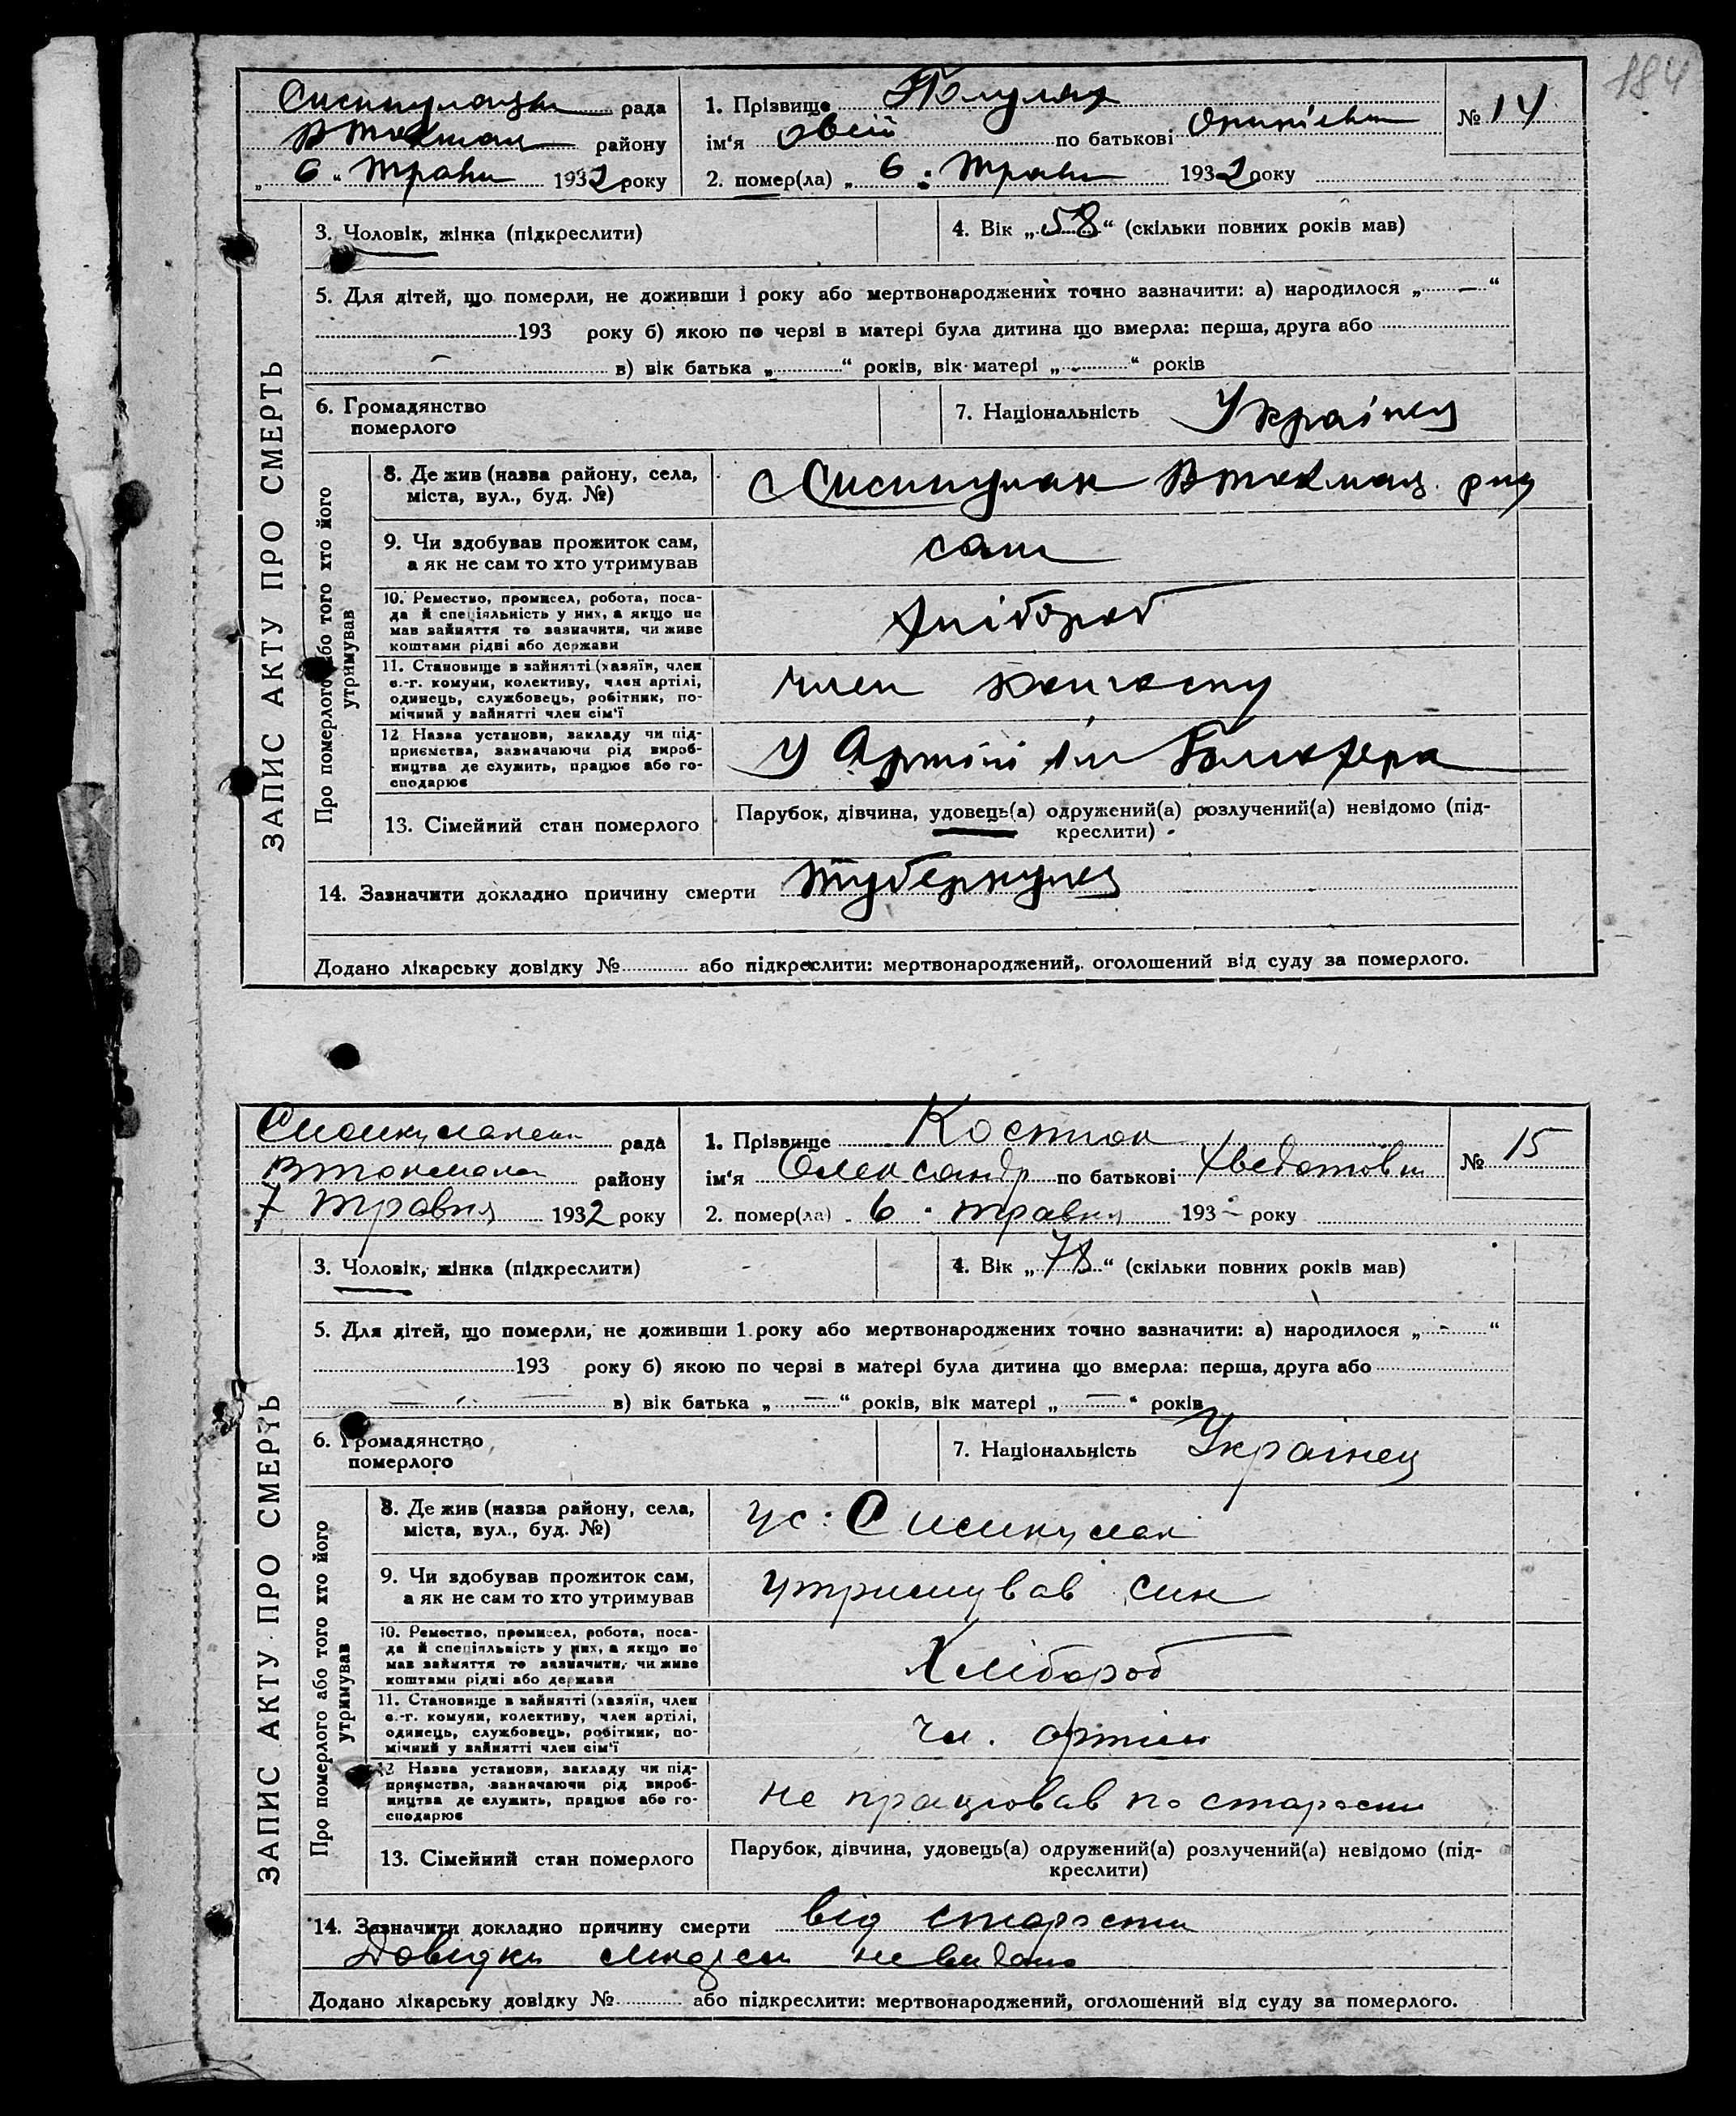 184
рада
району
„6“ Травн 1932 року
1. Прізвище
ім‘я Овсій по батькові
2. помер(ла) „6. Травн 1932 року
№ 14
ЗАПИС АКТУ ПРО СМЕРТЬ
3. Чоловік, жінка (підкреслити)
4. Вік „58“ (скільки повних років мав)
5. Для дітей, що померли, не доживши 1 року або мертвонароджених точно зазначити: а) народилося „—“
193 року б) якою по черзі в матері була дитина що вмерла: перша, друга або
— в) вік батька „ “ років, вік матері „-“ років
6. Громадянство
померлого
7. Національність Українец
Про померлого або того хто його
утримував
8. Де жив (назва району, села,
міста, вул., буд. №)
9. Чи здобував прожиток сам,
а як не сам то хто утримував
сам
10. Ремество, промисел, робота, поса-
да й спеціяльність у них, а якщо не
мав зайняття то зазначити, чи живе
коштами рідні або держави
Хлібороб
11. Становище в зайнятті (хазяїн, член
с.-г. комуни, колективу, член артілі,
одинець, службовець, робітник, по-
мічний у зайнятті член сім‘ї
член колгоспу
12 Назва установи, закладу чи під-
приємства, зазначаючи рід вироб-
ництва де служить, працює або го-
сподарює
У Артілі
13. Сімейний стан померлого
Парубок, дівчина, удовець(а) одружений(а) розлучений(а) невідомо (під-
креслити)
14. Зазначити докладно причину смерти туберкульз
Додано лікарську довідку № або підкреслити: мертвонароджений, оголошений від суду за померлого.
рада
району
7 травня 1932 року
1. Прізвище Костюк
ім‘я Олександр по батькові Хведотови
2. помер(ла) „6. травня 193- року
№ 15
ЗАПИС АКТУ ПРО СМЕРТЬ
3. Чоловік, жінка (підкреслити)
4. Вік „78“ (скільки повних років мав)
5. Для дітей, що померли, не доживши 1 року або мертвонароджених точно зазначити: а) народилося „-“
193 року б) якою по черзі в матері була дитина що вмерла: перша, друга або
— в) вік батька „—“ років, вік матері „—“ років
6. Громадянство
померлого
7. Національність Українец
Про померлого або того хто його
утримував
8. Де жив (назва району, села,
міста, вул., буд. №)
9. Чи здобував прожиток сам,
а як не сам то хто утримував
утримував син
10. Ремество, промисел, робота, поса-
да й спеціяльність у них, а якщо не
мав зайняття то зазначити, чи живе
коштами рідні або держави
Хлібороб
11. Становище в зайнятті (хазяїн, член
с.-г. комуни, колективу, член артілі,
одинець, службовець, робітник, по-
мічний у зайнятті член сім‘ї
чл. артіли
12 Назва установи, закладу чи під-
приємства, зазначаючи рід вироб-
ництва де служить, працює або го-
сподарює
не працював по старости
13. Сімейний стан померлого
Парубок, дівчина, удовець(а) одружений(а) розлучений(а) невідомо (під-
креслити)
14. Зазначити докладно причину смерти від старости
Довідки невидано
Додано лікарську довідку № або підкреслити: мертвонароджений, оголошений від суду за померлого.